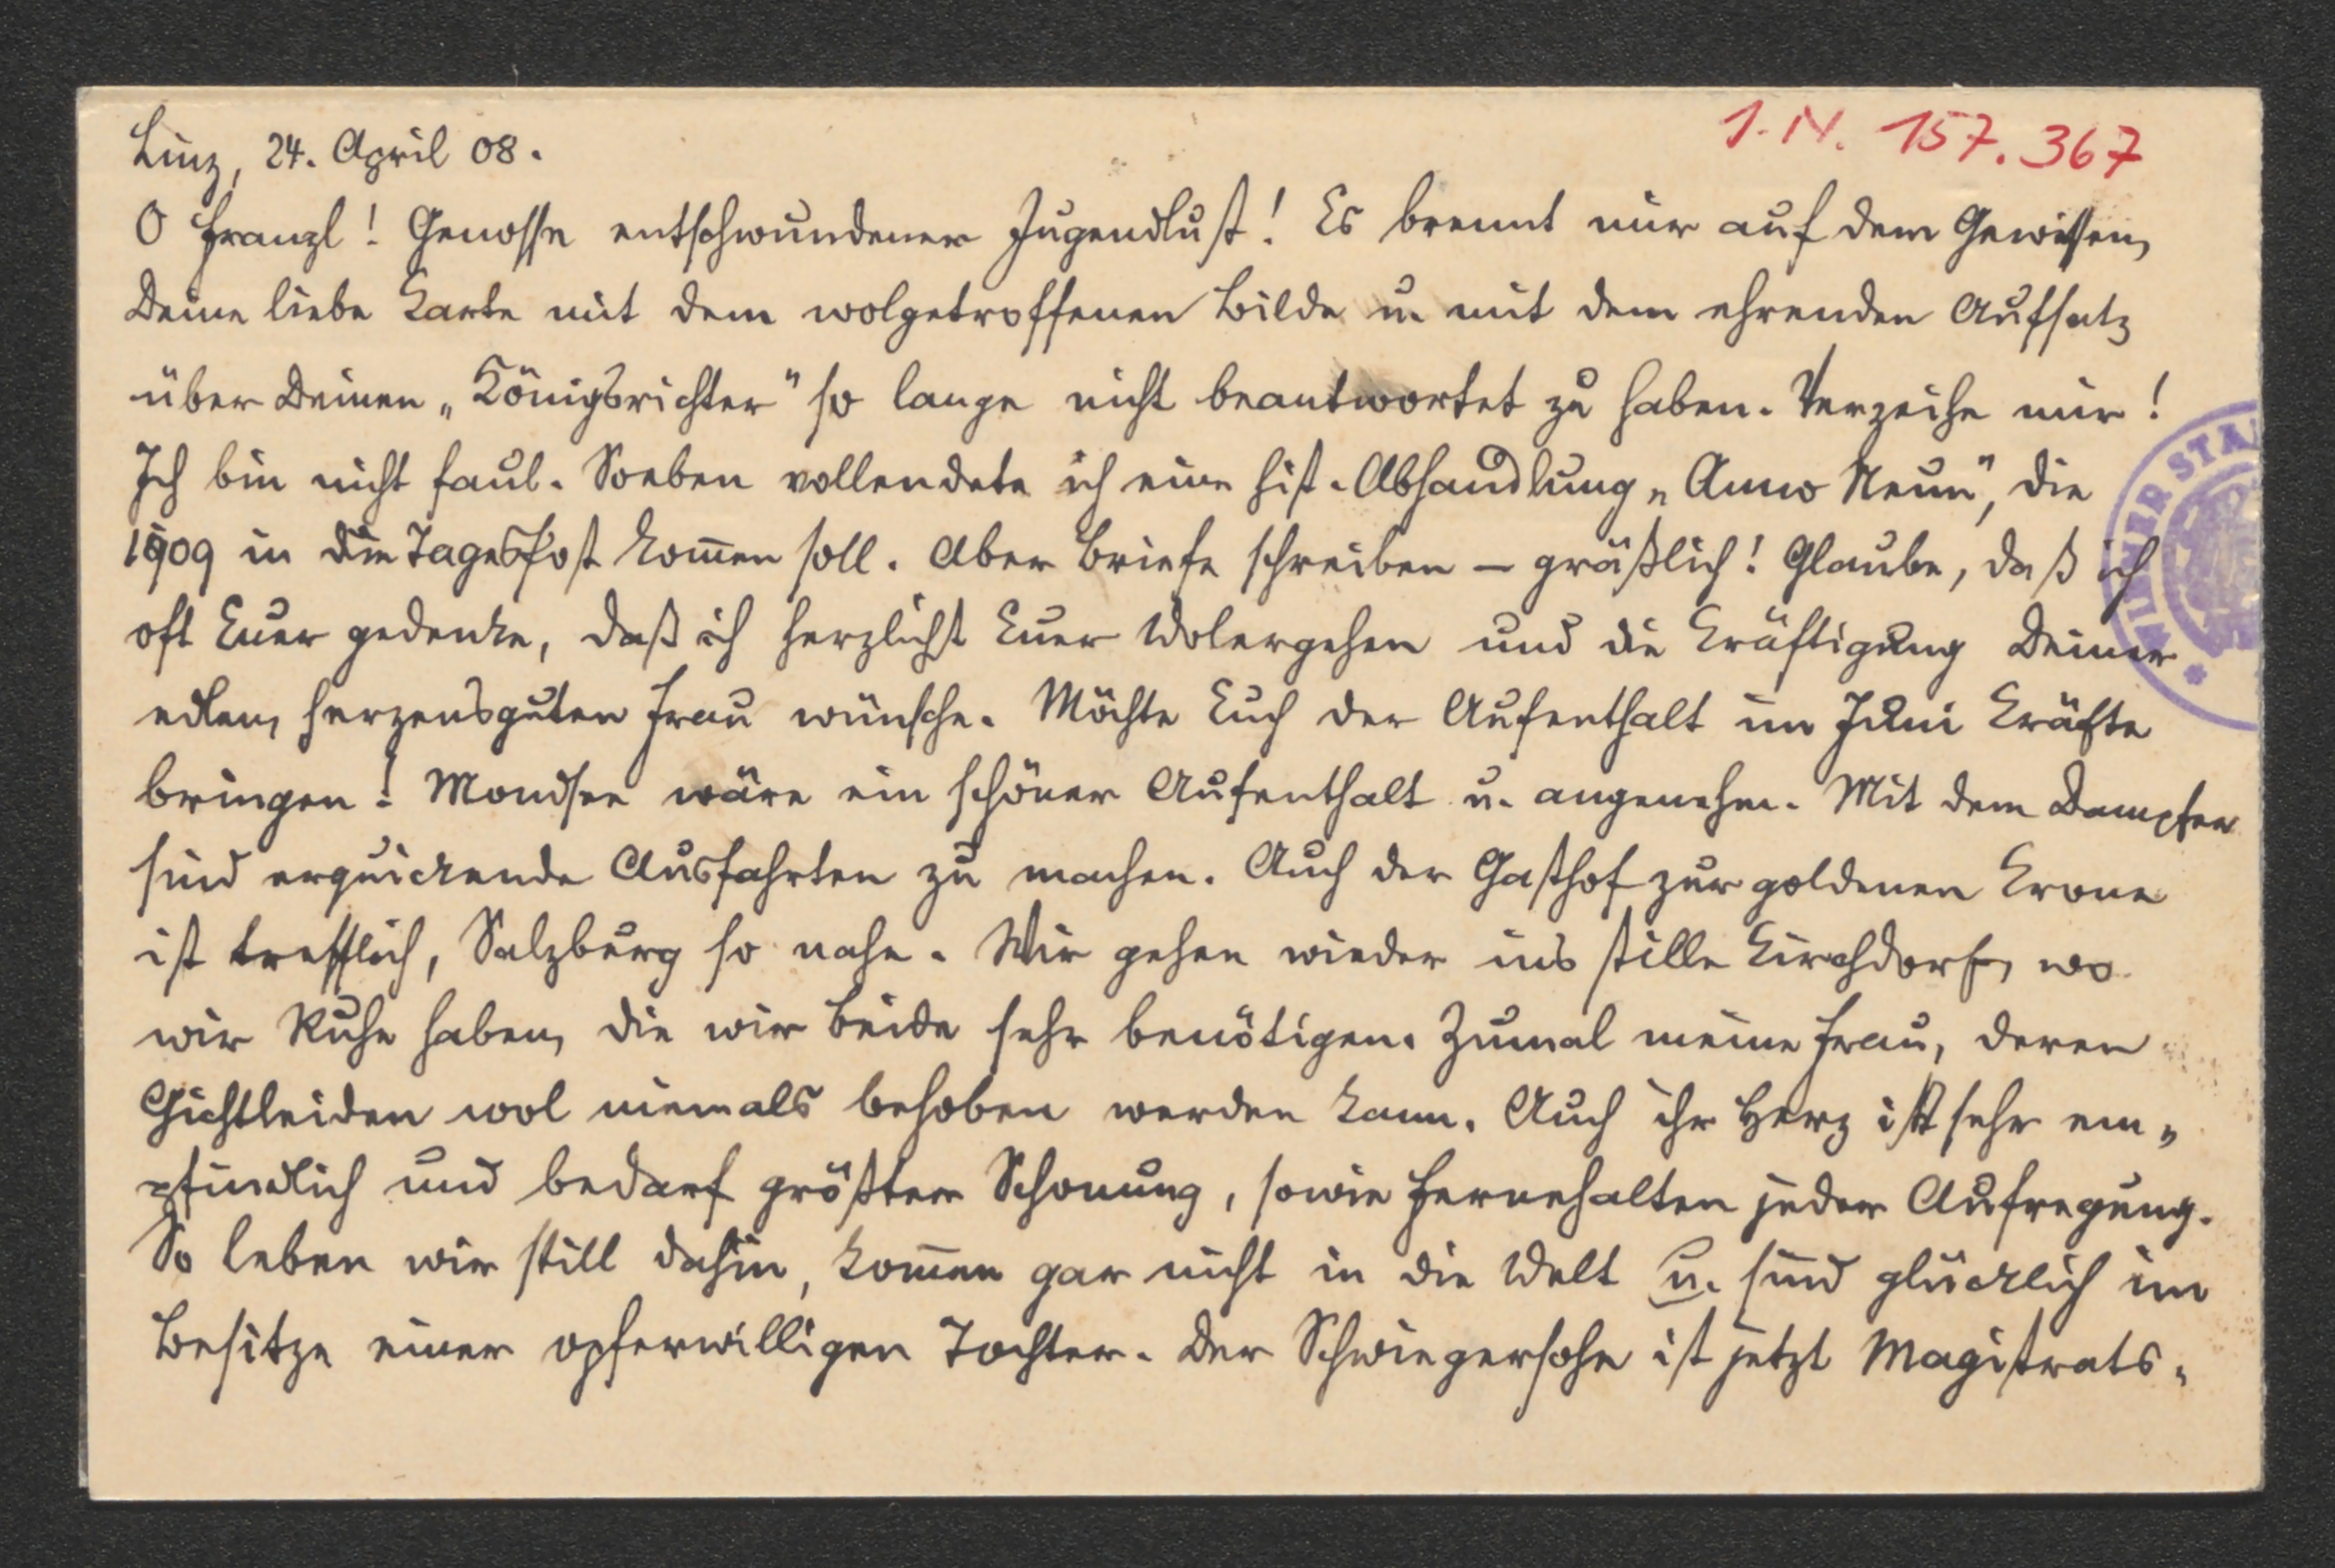 Linz, 24. April 08.
I.N. 157.367
O Franzl! Genosse entschwundener Jugendlust! Es brennt mir auf dem Gewissen,
Deine liebe Karte mit dem wolgetroffenen Bilde u. mit dem ehrenden Aufsatz
über Deinen „Königsrichter" so lange nicht beantwortet zu haben. Verzeihe mir!
Ich bin nicht faul. Soeben vollendete ich eine hist. Abhandlung „Anno Neun", die
1909 in die Tagespost kom̅en soll. Aber Briefe schreiben – gräßlich! Glaube, daß ich
oft Euer gedenke, daß ich herzlichst Euer Wolergehen und die Kräftigung Deiner
edlen, herzensguten Frau wünsche. Möchte Euch der Aufenthalt im Juni Kräfte
bringen! Mondsee wäre ein schöner Aufenthalt u. angenehm. Mit dem Dampfer
sind erquickende Ausfahrten zu machen. Auch der Gasthof zur goldenen Krone
ist trefflich, Salzburg so nahe. Wir gehen wieder ins stille Kirchdorf, wo
wir Ruhe haben, die wir beide sehr benötigen. Zumal meine Frau, deren
Gichtleiden wol niemals behoben werden kann. Auch ihr Herz ist sehr em„
pfindlich und bedarf größter Schonung, sowie Fernehalten jeder Aufregung.
So leben wir still dahin, kom̅en gar nicht in die Welt u. sind glücklich im
Besitze einer opferwilligen Tochter. Der Schwiegersohn ist jetzt Magistrats„
WIENER STA